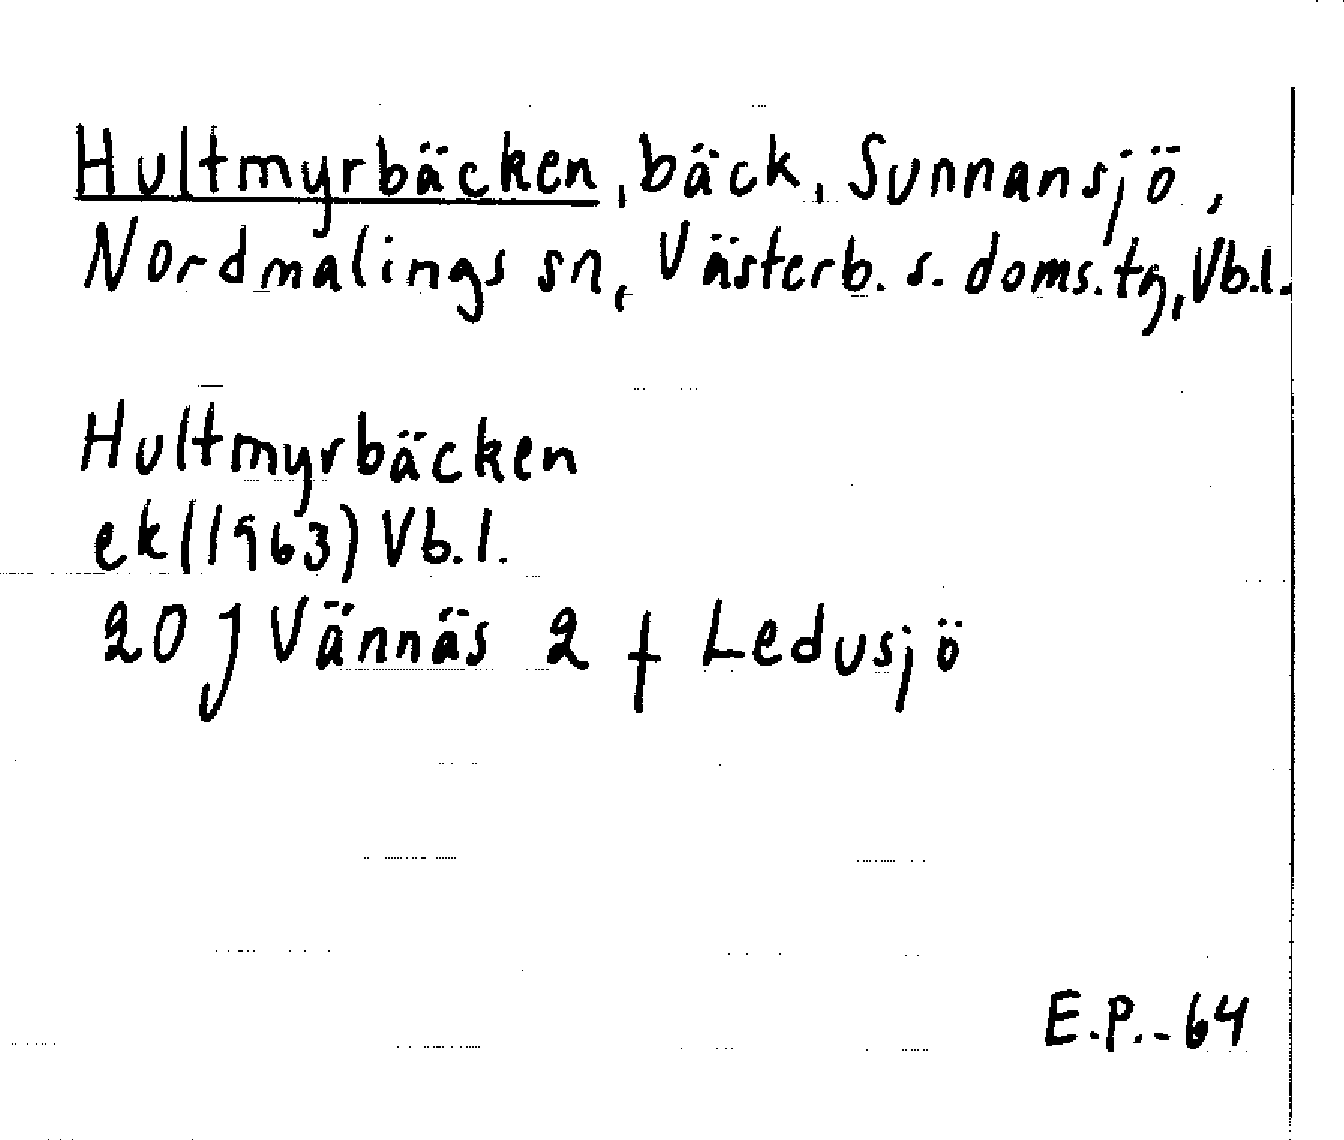 Hultmyrbäcken, bäck, Sunnansjö,
Nordmalings sn, Västerb. s. doms.tg, Vb.l.
Hultmyrbäcken
ek (1963) Vb.l.
20 J Vännäs 2 f Ledusjö
E.P.-64